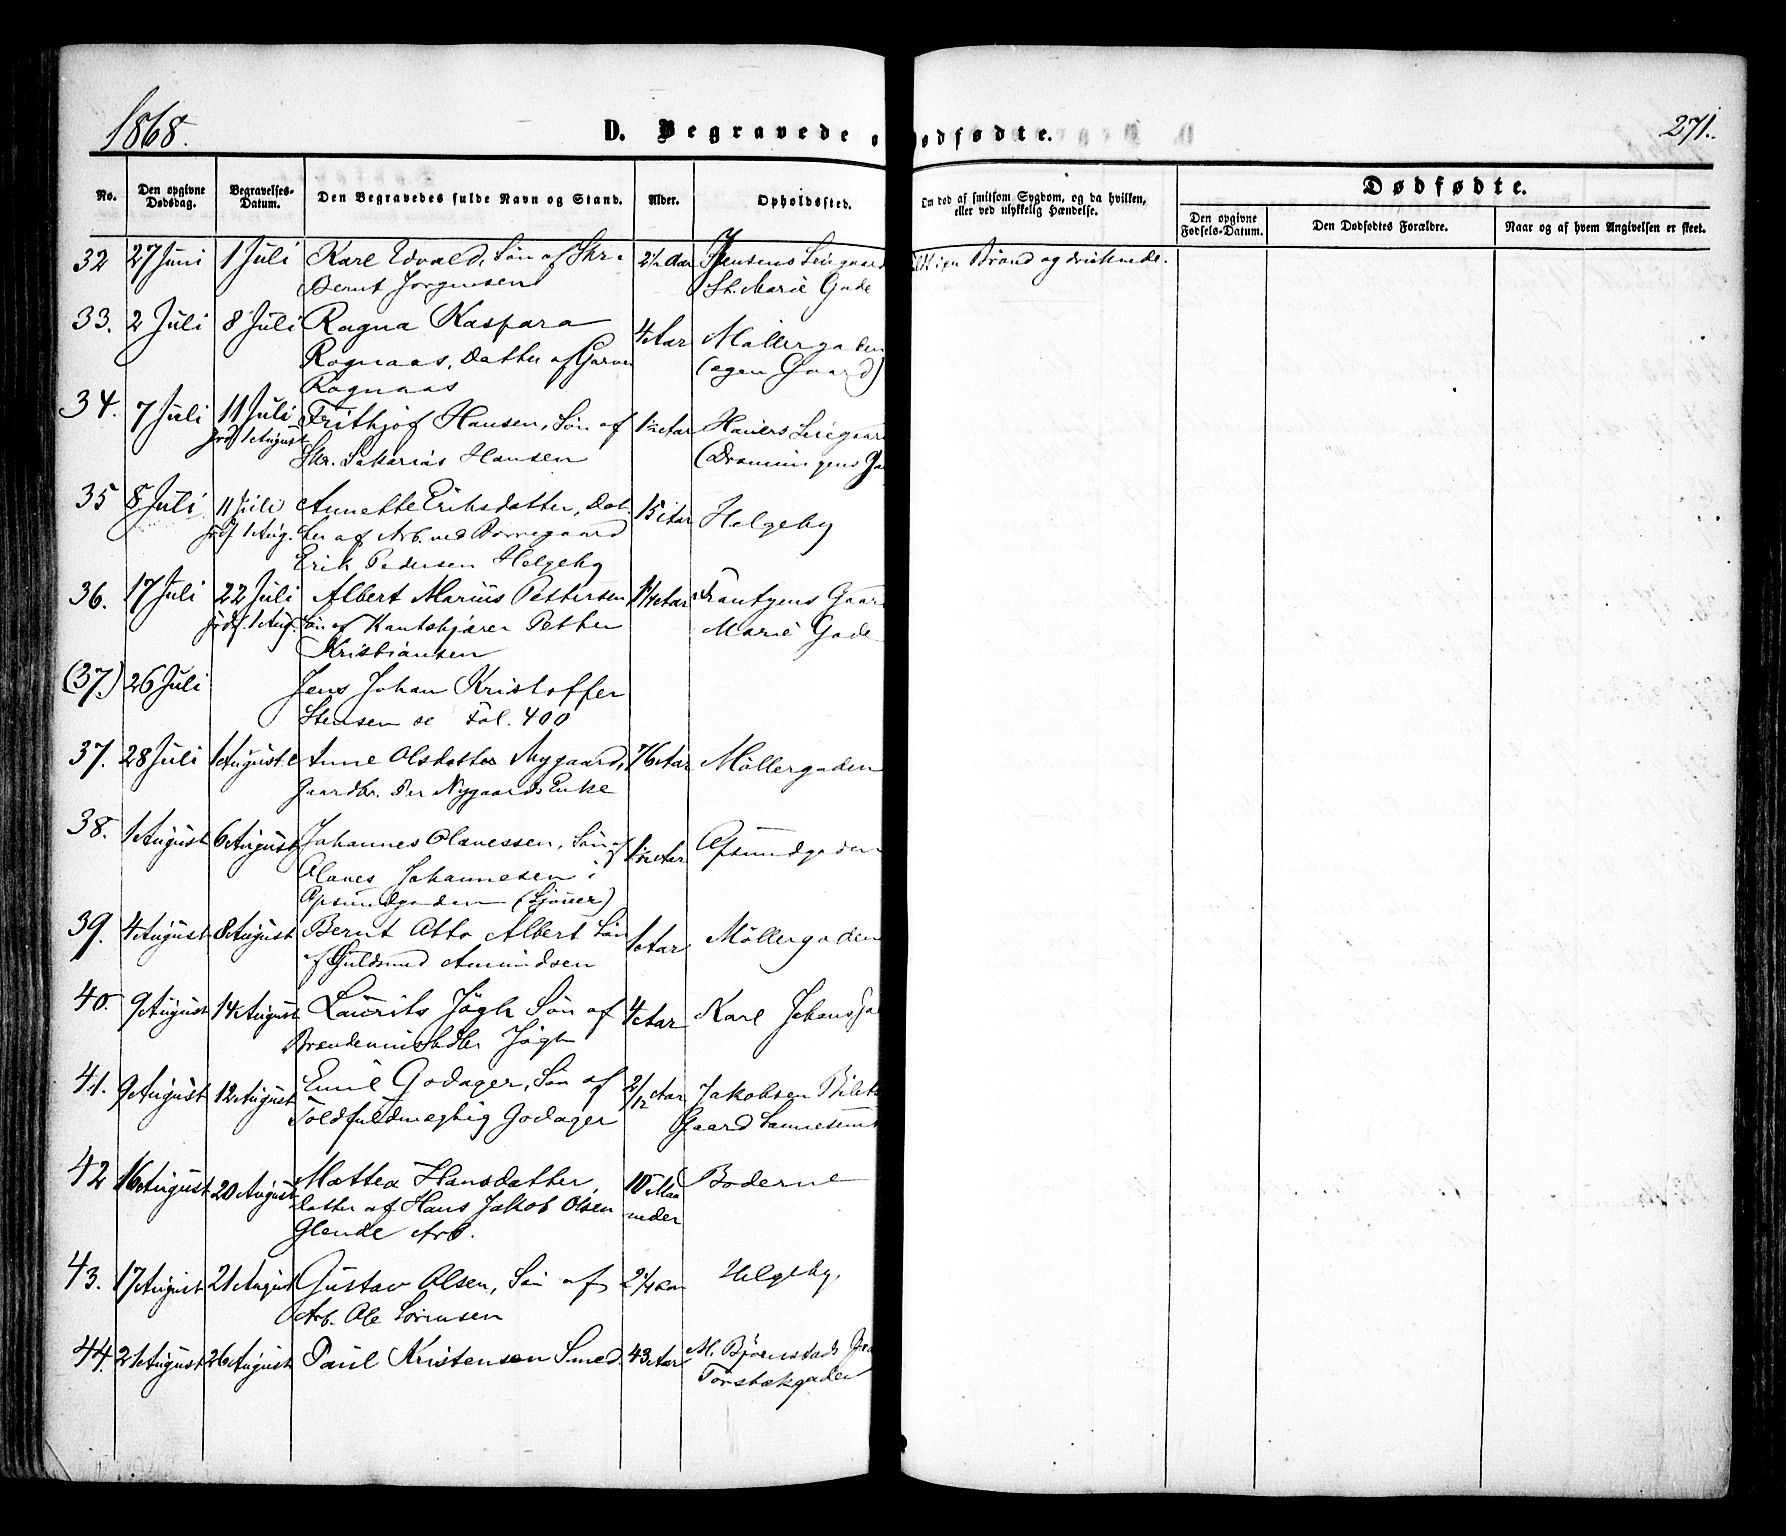 1868.
D. Begravede o
ødfødte.
271.
No.
Den opgivne Dødsdag.
Begravelses-Datum.
Den Begravedes fulde Navn og Stand.
Alder.
Opholdssted.
Om død af smitsom Sygdom, og da hvilken, eller ved ulykkelig Hændelse.
Dødfødte.
Den opgivne Fødsels-Datum.
Den Dødfødtes Forældre.
Naar og af hvem Angivelsen er skeet.
32 27 Juni 1 Juli Karl Edvald, Søn af Skr. 2½ Aar Jensens Leiegaard i en Brønd og druknede.
Bernt Jørgensen St. Marie Gade
33. 2 Juli 8 Juli Ragna Kaspara 4 Aar Møllergaden
Rognaas, Datter af Garver (egen Gaard)
Rognaas
34. 7 Juli 11 Juli Frithjof Hansen, Søn af 1½ Aar Leiegaar
jordf 1 August Skr. Sakarias Hansen (Dronningens Ga
35 8 Juli 11 Juli Annette Eriksdatter, Dat- 15 Aar Helgeby
jordf 1 Aug. ter af Arb. ved Borregaard
Erik Pedersen Helgeby
36. 17 Juli 22 Juli Albert Marius Pettersen 1¼ Aar Gaar
jordf 1 Aug. Søn af Petter Marie Gade
Kristiansen
(37.) 26 Juli Jens Johan Kristoffer
Stensen se Fol. 400
37. 28 Juli 1 August Anne Olsdatter Nygaard, 76 Aar Møllergaden
Gaardbr. Per Nygaards Enke
38. 1 August 6 August Johannes Olavessen, Søn af 1½ Aar Apsundgaden
Olaves Johannesen i
Apsundgaden (Sjouer)
39. 4 August 8 August Bernt Otto Albert Søn 1 Aar Møllergaden
af Guldsmed Amundsen
40. 9 August 14 August Laurits Jøgh Søn af 4 Aar Karl Johans Ga
Brændevinshdlr Jøgh
41. 9 August 12 August Emil Godager, Søn af 2/12 Aar Jakobsen
Toldfuldmægtig Godager Gaard Sannesund
42 16 August 20 August Mattea Hansdatter, 10 Maa
Datter af Hans Jakob Olsen neder Boderne
Glende Arb.
43. 17 August 21 August Gustav Olsen, Søn af 2¼ Aar Helgeby.
Arb. Ole Sørensen
44. 21 August 26 August Paul Kristensen Smed. 43 Aar M. Bjørnstads Gaa
Torsbækgaden